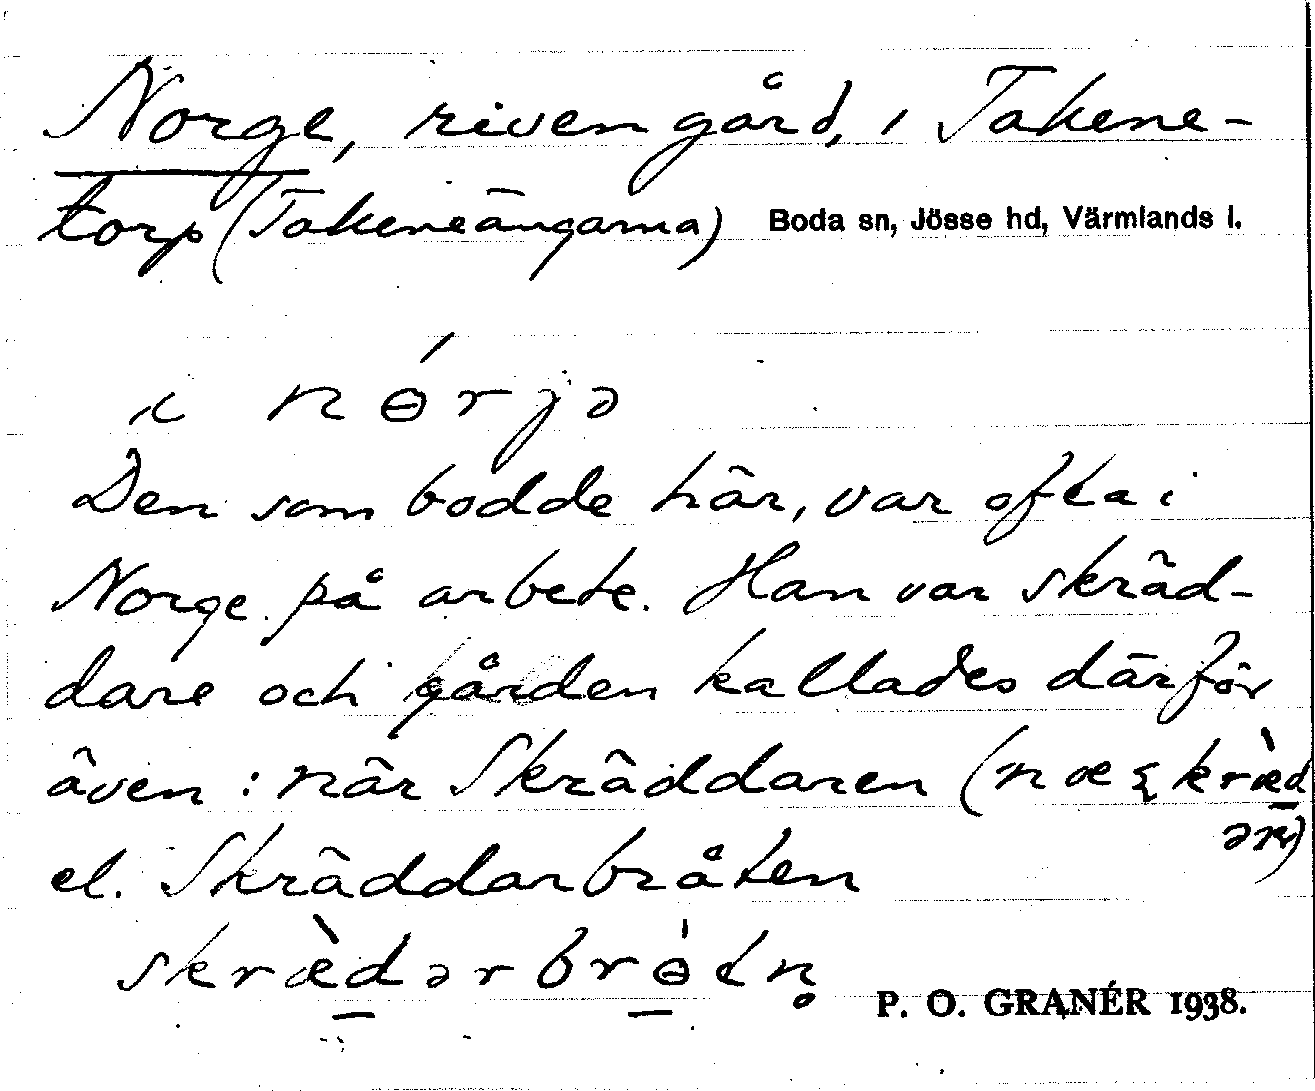 Norge, riven gård, i Takene-
torp (Takeneängarna) Boda sn, Jösse hd, Värmlands l.
i nɵ́rjə
Den som bodde här, var ofta i
Norge på arbete. Han var skräd-
dare och gården kallades därför
även: när Skräddaren (næ
el. Skräddarbråten
skræ̀dərbrɵ́tn̥
P. O. GRANÉR 1938.